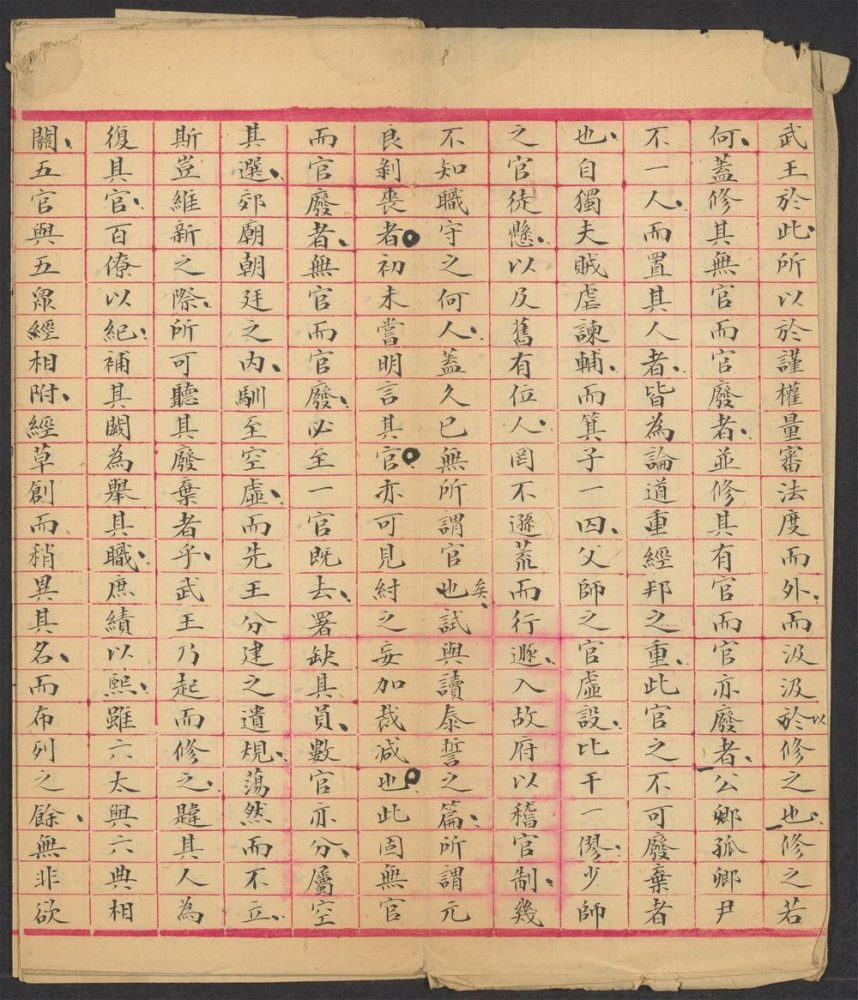 武王於此、所以於謹權量審法度而外、而汲汲於以修之也、修之若
何、蓋修其無官而官廢者、並修其有官而官亦廢者、公卿孤卿尹
不一人、而置其人者、皆為論道重經邦之重、此官之不可廢棄者
也、自獨夫賊虐諫輔、而箕子一囚、父師之官虛設、比干一僇、少師
之官徒懸、以及舊有位人、罔不遯荒而行遯、入故府以稽官制、幾
不知職守之何人、蓋久已無所謂官也矣、試與讀泰誓之篇、所謂元
良剝喪者初未嘗明言其官亦可見紂之妄加裁減也此固無官
而官廢者、無官而官廢、必至一官既去、署缺其員、數官亦分、屬空
其選、郊廟朝廷之內、馴至空虛、而先王分建之遺規、蕩然而不立、
斯豈維新之際、所可聽其廢棄者乎、武王乃起而修之、韙其人為
復其官、百僚以紀、補其闕為舉其職、庶績以熙、雖六太與六典相
關、五官與五眾經相附、經草創而稍異其名、而布列之餘、無非欲